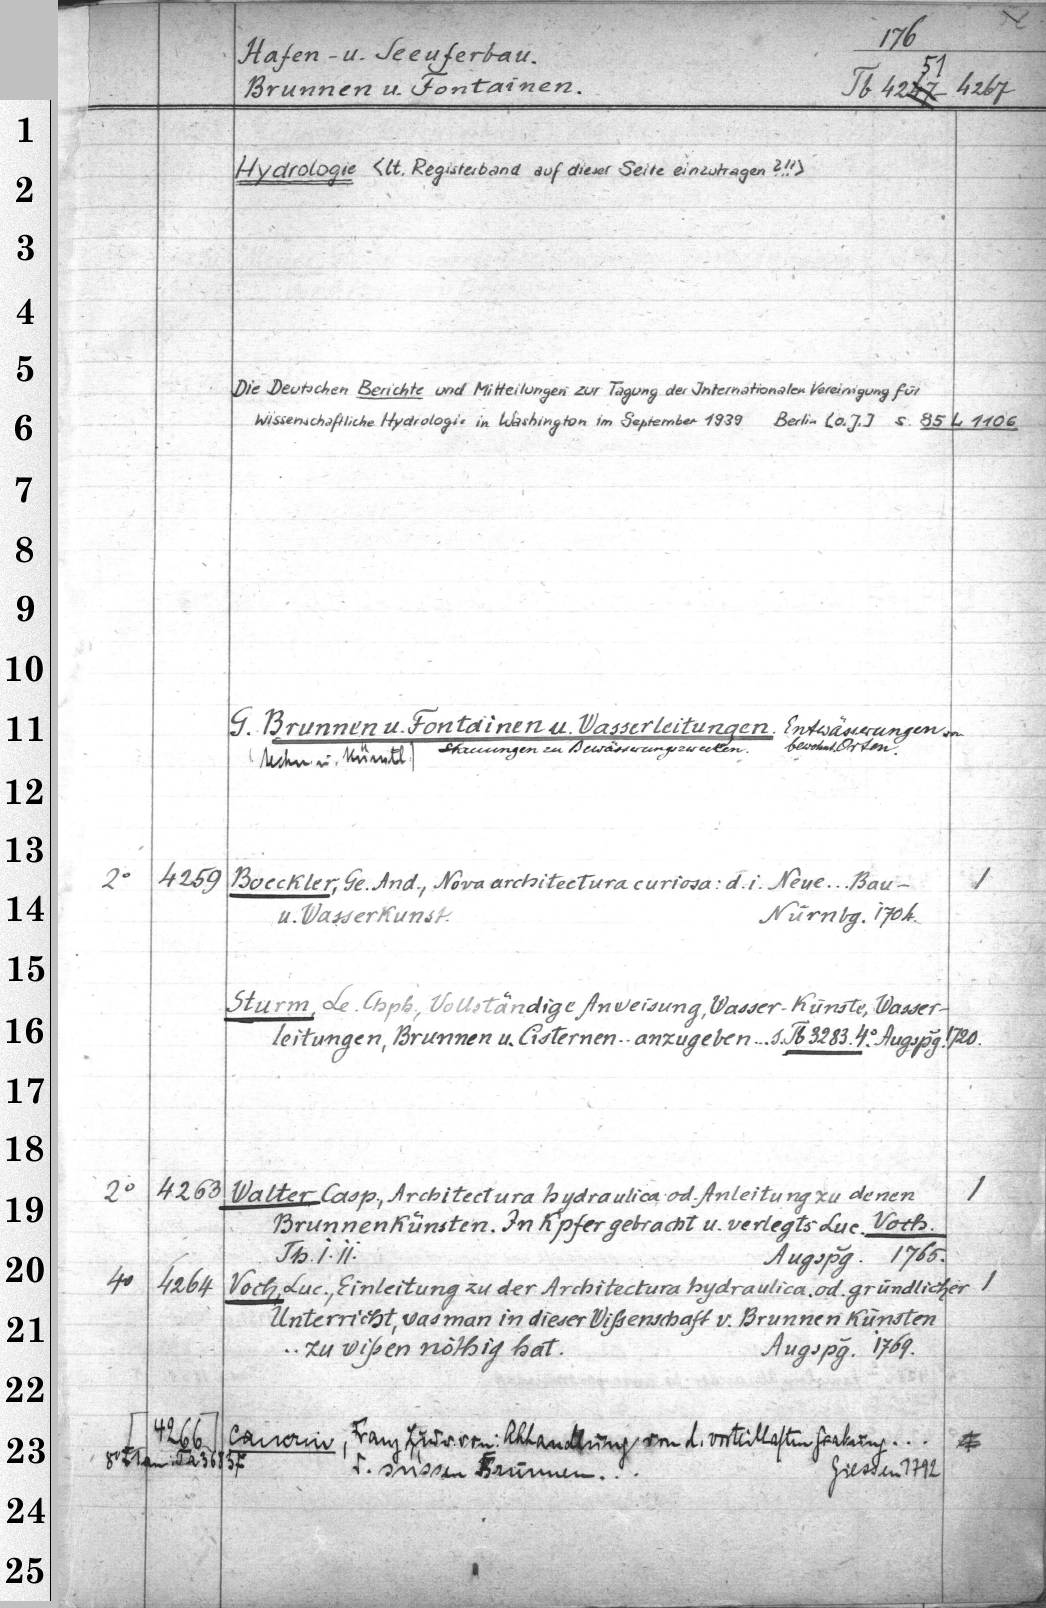 176
Hafen- u. Seeuferbau.
51
Brunnen u. Fontainen. Tb 4247 4267
1
Hydrologie <lt. Registerband auf dieser Seite einzutragen ?!!>
2
3
4
5
Die Deutschen Berichte und Mitteilungen zur Tagung der Internationalen Vereinigung für
6 Wissenschaftliche Hydrologie in Washington im September 1939 Berlin [o.J.] s. 85 L 1106
7
8
9
10
11 G. Brunnen u. Fontainen u. Wasserleitungen. Entwässerungen von
(techn. u. Künstl.) Stauungen zu Bewässerungszwecken. bewohnt. Orten.
12
13
2° 4259 Boeckler, Ge. And., Nova architectura curiosa: d. i. Neue... Bau- 1
14 u. Wasserkunst. Nürnbg. 1704.
15
Sturm, Le. Chph., Vollständige Anweisung, Wasser-Künste, Wasser-
16 leitungen, Brunnen u. Cisternen.. anzugeben... s. Tb 3283. 4°. Augspg. 1720.
17
18
2° 4263 Walter, Casp., Architectura hydraulica od. Anleitung zu denen 1
19 Brunnenkünsten. In Kpfer gebracht u. verlegts Luc. Voch.
Th. i. ii. Augspg. 1765.
20
4° 4264 Voch, Luc., Einleitung zu der Architectura hydraulica. od. gründlicher 1
21 Unterricht, was man in dieser Wißenschaft v. Brunnen Künsten
.. zu wißen nöthig hat. Augspg. 1769.
22
[4266] Cancrin, Franz Ludw. von: Abhandlung von d. vorteilhaften Grabung...
23 8° d. süssen Brunnen... Giessen 1792
24
25